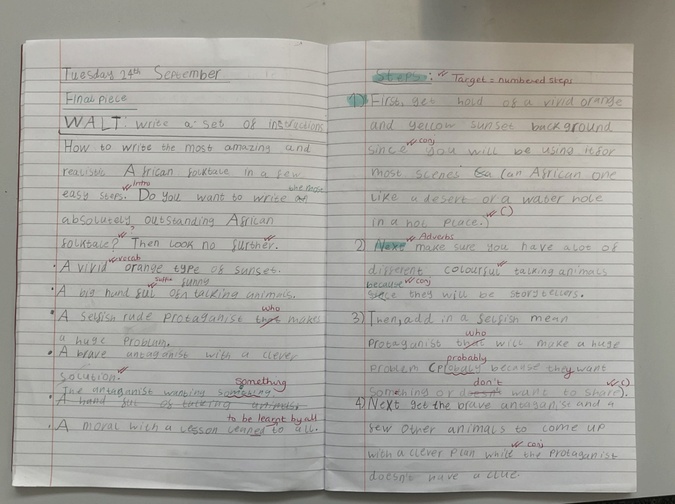 Tuesday 24th September
Final piece
WALT: write a set of instructions
How to write the most amazing and
realistic African folktale in a few
easy steps. Do you want to write an
Intro
absolutely outstanding African
folktale? Then look no further.
• A vivid orange type of sunset.
vocab
• A big hand ful of talking animals.
suffix funny
• A selfish rude protaganist that makes
who
a huge problem.
• A brave antaganist with a clever
solution.
The antaganist wanting
something
A hand ful of talking animals.
to be learnt by all
• A moral with a lesson to all.
Steps: Target = numbered steps
1) First, get hold of a vivid orange
and yellow sunset background
conj
since you will be using it for
most scenes (an African one
like a desert or a water hole
in a hot place.) ()
Adverbs
2) Next make sure you have alot of
different colourful talking animals
because conj
they will be storytellers.
3) Then, add in a selfish mean
who
protaganist that will make a huge
probably
problem because they want
don't
something or want to share). ()
4) Next get the brave antaganist and a
few other animals to come up
conj
with a clever plan while the protaganist
doesn't have a clue.